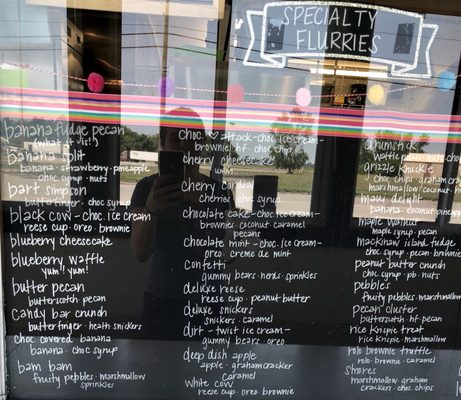 SPECIALTY
FLURRIES
banana fudge pecan
(what it is!)
banana split
banana · strawberry · pineapple
choc syrup · nuts
bart simpson
butterfinger · choc syrup
black cow - choc. ice cream
reese cup · oreo · brownie
blueberry cheesecake
blueberry waffle
yum!! yum!
butter pecan
butterscotch · pecan
candy bar crunch
butterfinger · heath · snickers
choc. covered banana
banana · choc syrup
bam bam
fruity pebbles · marshmallow
sprinkles
choc. attack - choc. ice cream -
brownie · hf · choc chips
cherry cheesecake
cherry cordial
cherries · choc syrup
chocolate cake - choc ice cream -
brownies · coconut · caramel
pecans
chocolate mint - choc. ice cream -
oreo · creme de mint
confetti
gummy bears · nerds · sprinkles
deluxe reese
reese cup · peanut butter
deluxe snickers
snickers · caramel
dirt - twist ice cream -
gummy bears · oreo
deep dish apple
apple · graham cracker
caramel
white cow
reese cup · oreo · brownie
drumstick
waffle pecan · nuts · choc
grizzle knuckle
choc chips · graham crackers
marshmallow · coconut · hf
maui delight
banana · coconut · pecans
maple walnut
maple syrup · pecan
mackinaw island fudge
choc syrup · pecan · brownie
peanut butter crunch
choc syrup · pb · nuts
pebbles
fruity pebbles · marshmallow
pecan cluster
butterscotch · hf · pecan
rice krispie treat
rice krispie · marshmallow
rolo brownie truffle
rolo · brownie · caramel
smores
marshmallow · graham
crackers · choc. chips